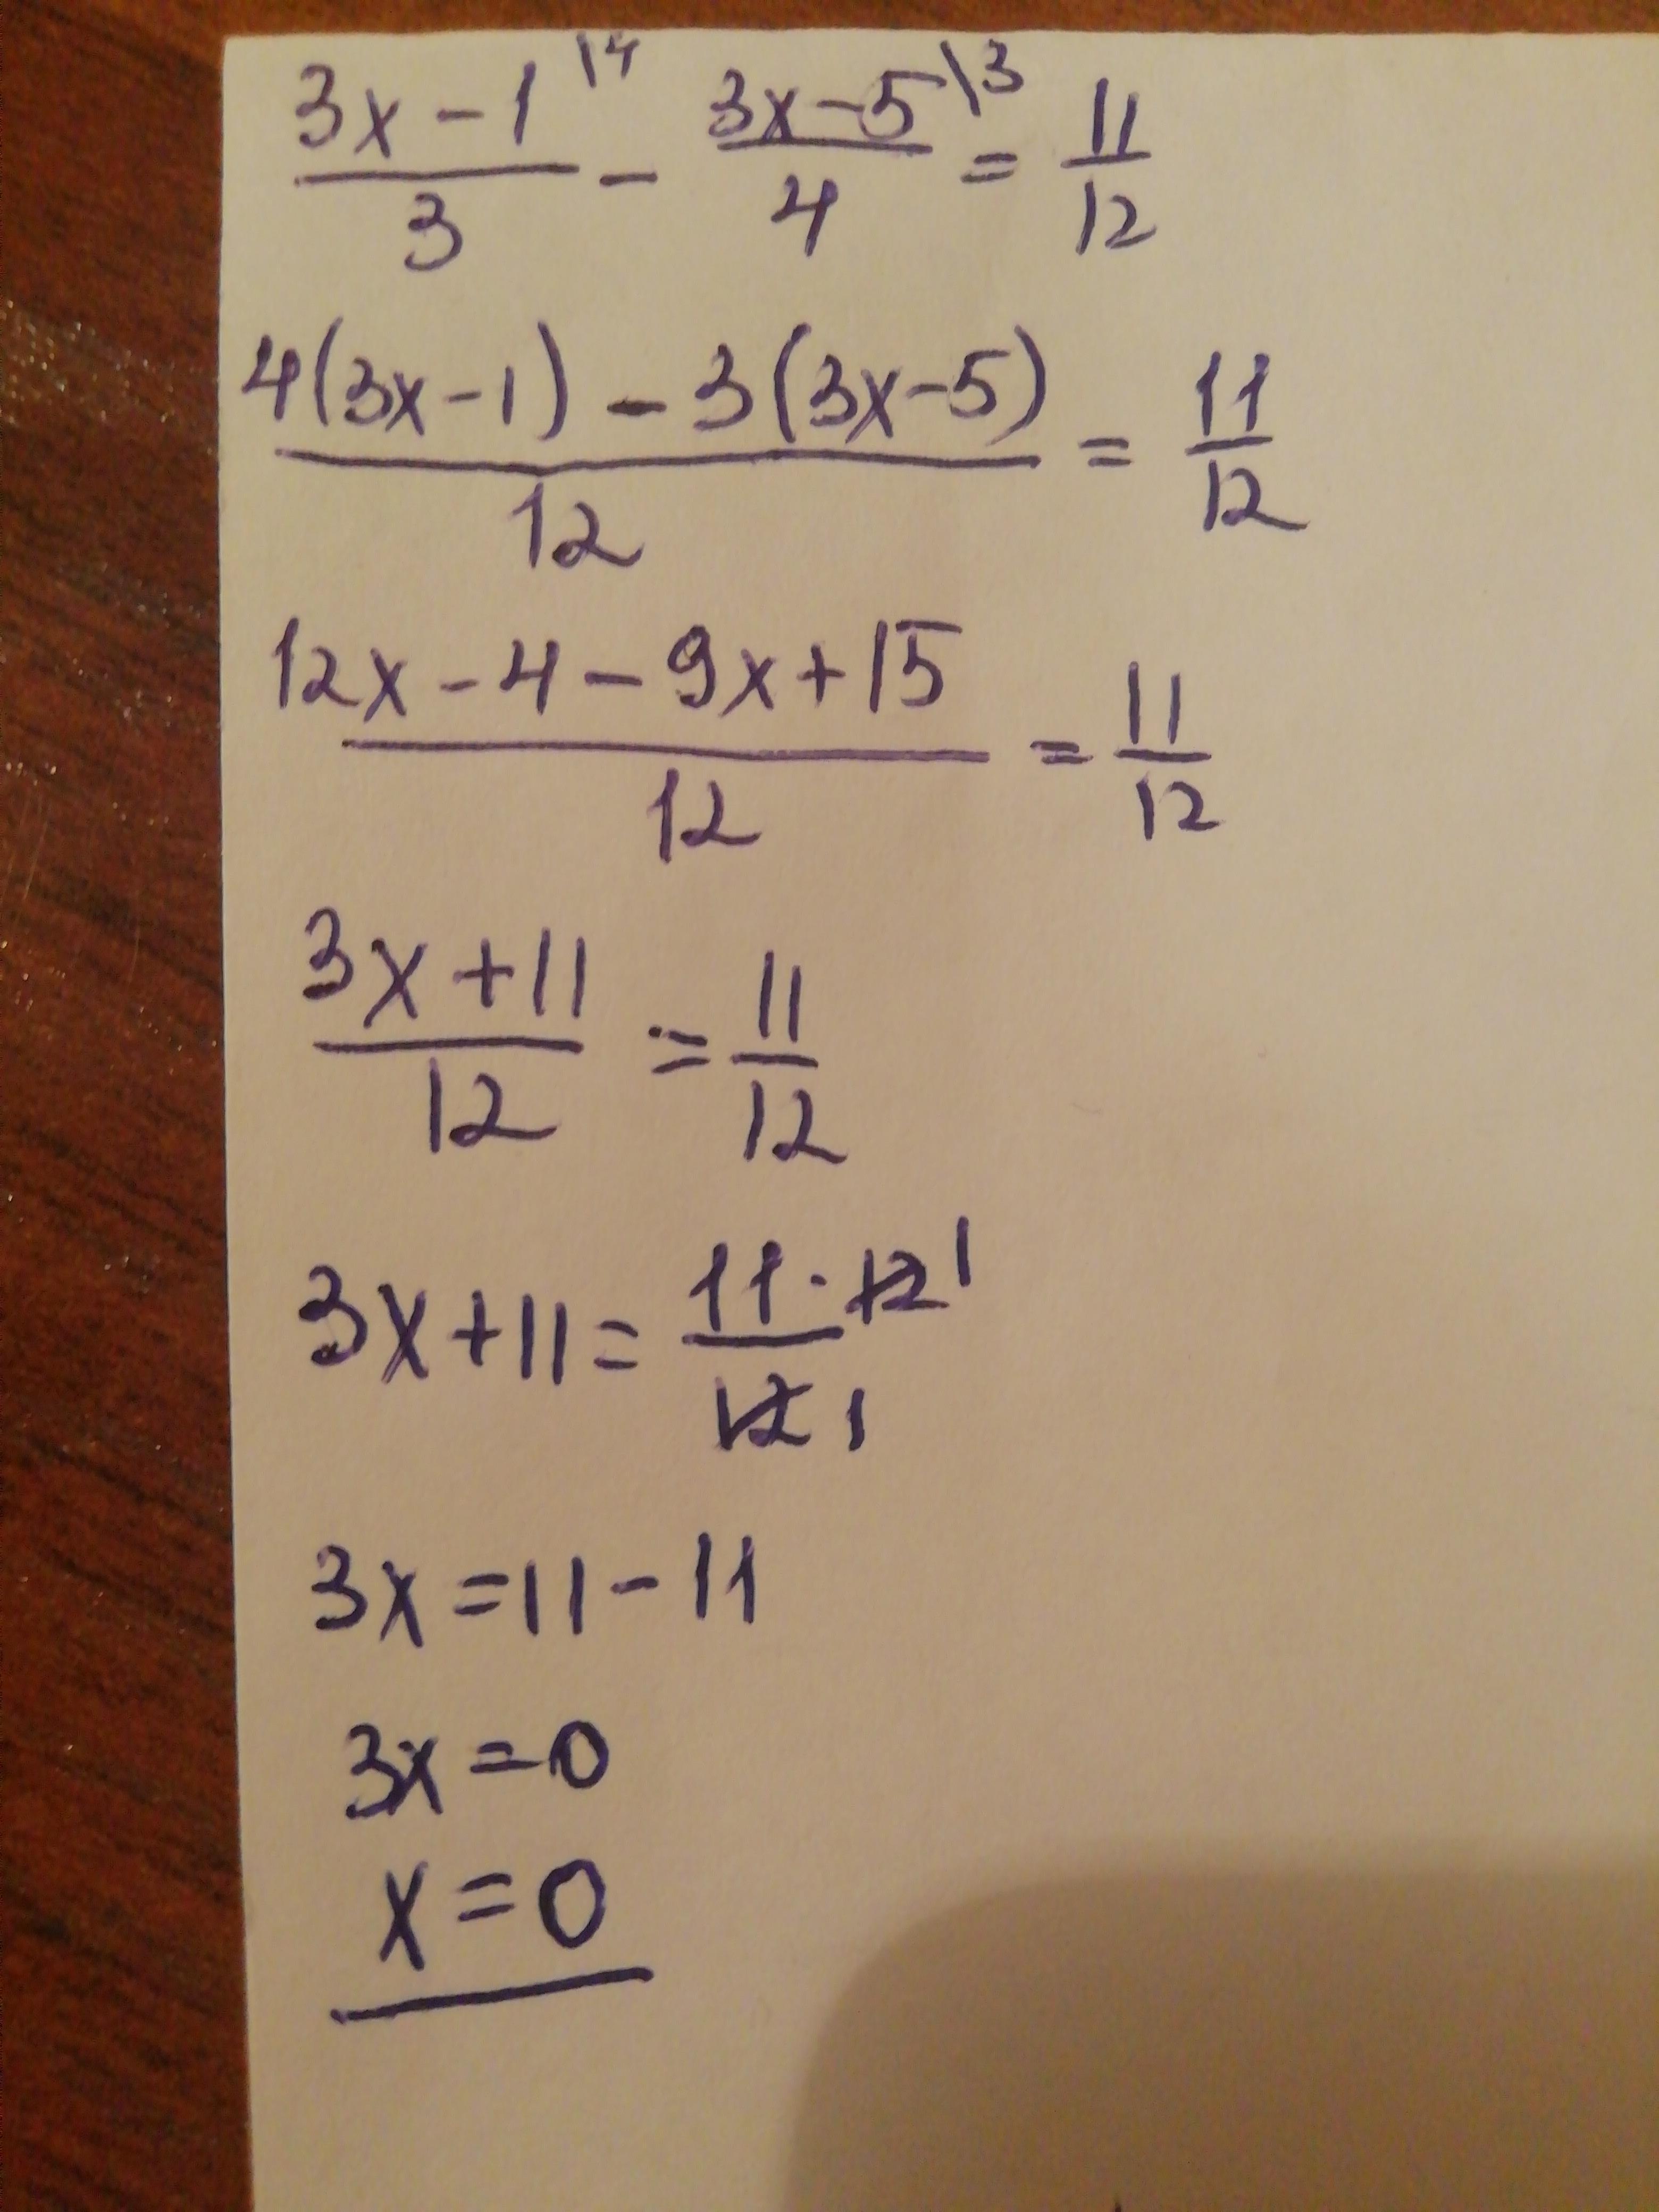 (3x-1)/3 \4 - (3x-5)/4 \3 = 11/12
(4(3x-1) - 3(3x-5))/12 = 11/12
(12x-4-9x+15)/12 = 11/12
(3x+11)/12 = 11/12
3x+11 = (11·12 1)/(12 1)
3x=11-11
3x=0
x=0